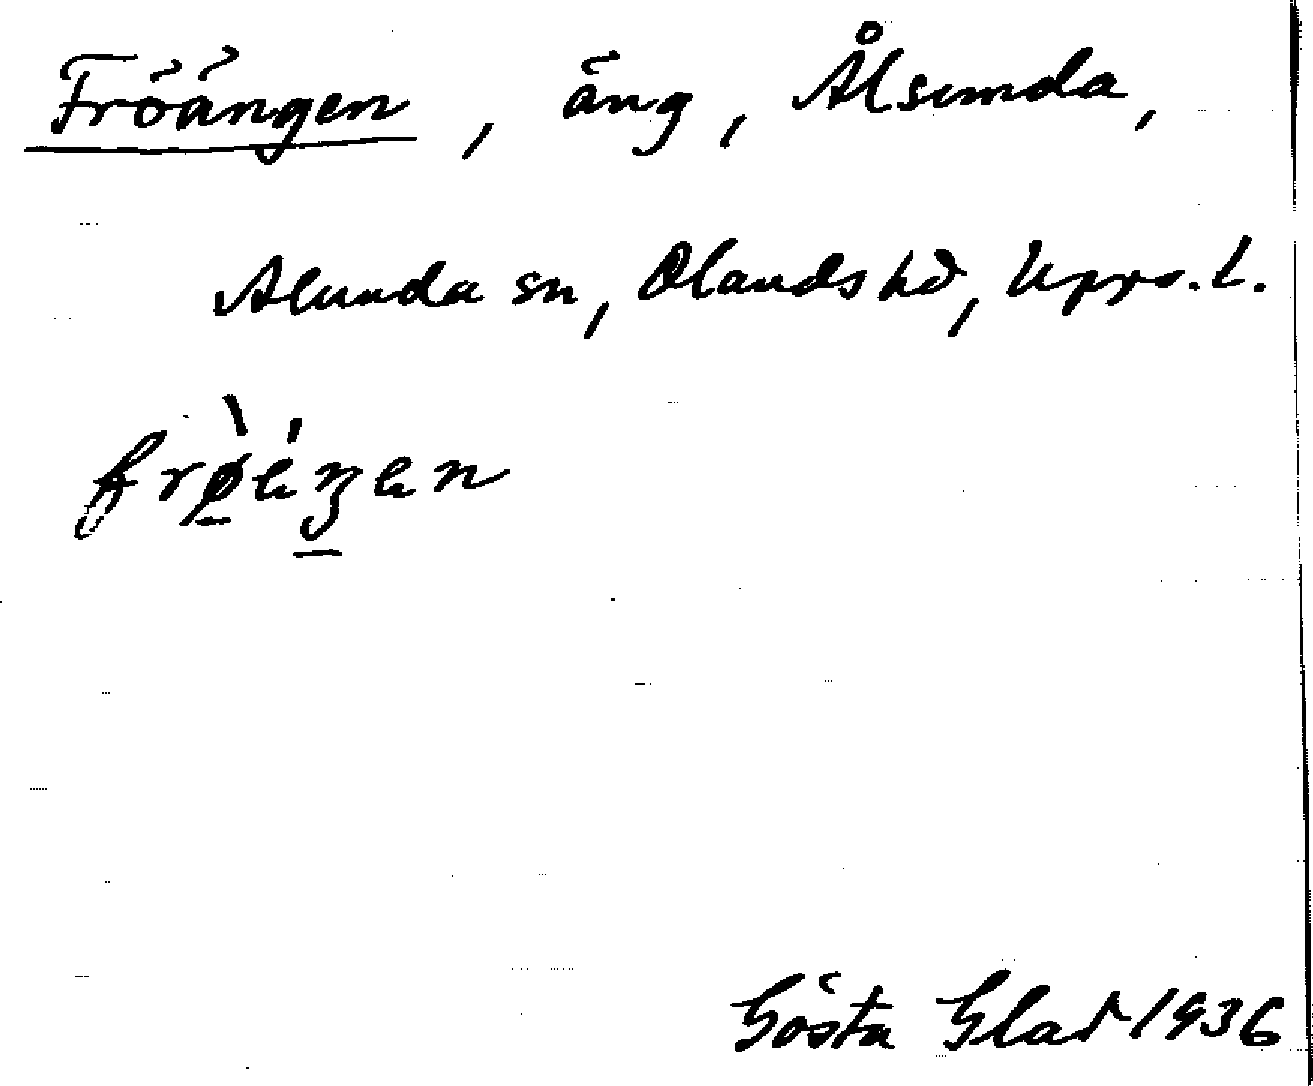 Fröängen, äng, Ålsunda,
Alunda sn, Olands hd, Upps. l.
frø̀éŋen
Gösta Glad 1936